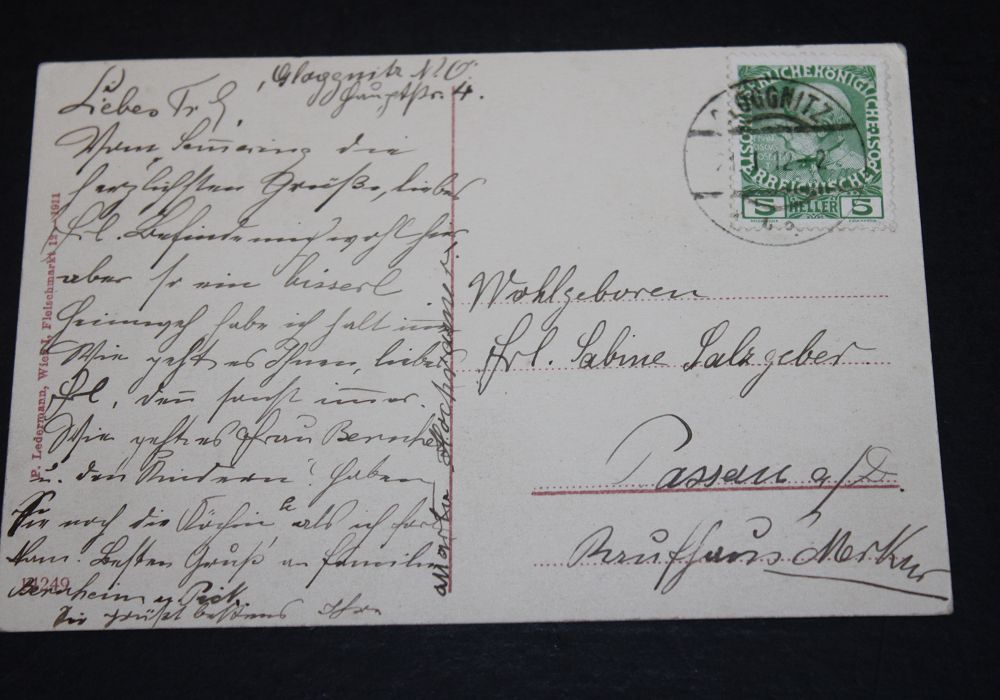 Gloggnitz N.Ö.
Hauptstr. 4.
Liebes Frl,
Vom Semmering die
herzlichsten Grüße, liebes
Frl. Befinde mich wohl hier,
aber so ein bisserl
Heimweh habe ich halt
Wie geht es Ihnen, liebes
Frl, denn sonst immer.
Wie geht es Frau Bernheim
u. den Kindern? Haben
Sie noch die Köchin als ich fort
kam. Besten Gruß an Familie
Bernheim u. Pick
Sie grüßt bestens Ihre
P. Ledermann, Wien I, Fleischmarkt 12 1911
14249
GLOGGNITZ
ÖSTERREICHISCHE POST
5 HELLER 5
Wohlgeboren
Frl. Sabine Salzgeber
Passau a/D.
Kaufhaus Merkur